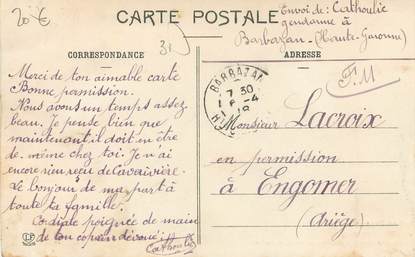 20 €
CARTE POSTALE
Envoi de: Cathoulic
gendarme à
Barbazan (Haute-Garonne)
31
CORRESPONDANCE
ADRESSE
Merci de ton aimable carte
Bonne permission.
Nous avons un temps assez
beau. Je pense bien que
maintenant il doit en être
de même chez toi. Je n'ai
encore rien reçu de
Le bonjour de ma part à
toute ta famille.
Cordiale poignée de main
de ton copain dévoué.
Cathoulic
F.M
BARBAZAN
7 30
6 - 4
18
Monsieur Lacroix
en permission
à Engomer
(Ariège)